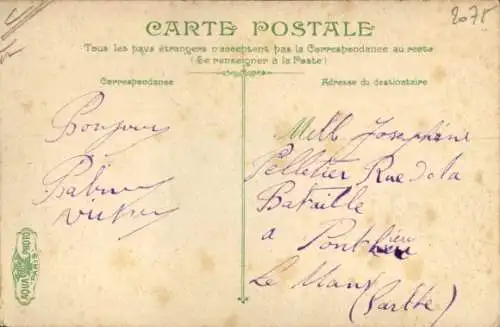 2075
CARTE POSTALE
Tous les pays étrangers n'acceptent pas la Correspondance au recto
(Se renseigner à la Poste)
Correspondance
Adresse du destinataire
Bonjour
Melle Josephine
Pelletier Rue de la
Bataille
a Pontlieu
Le Mans
(Sarthe)
AQUA PHOTO
PARIS